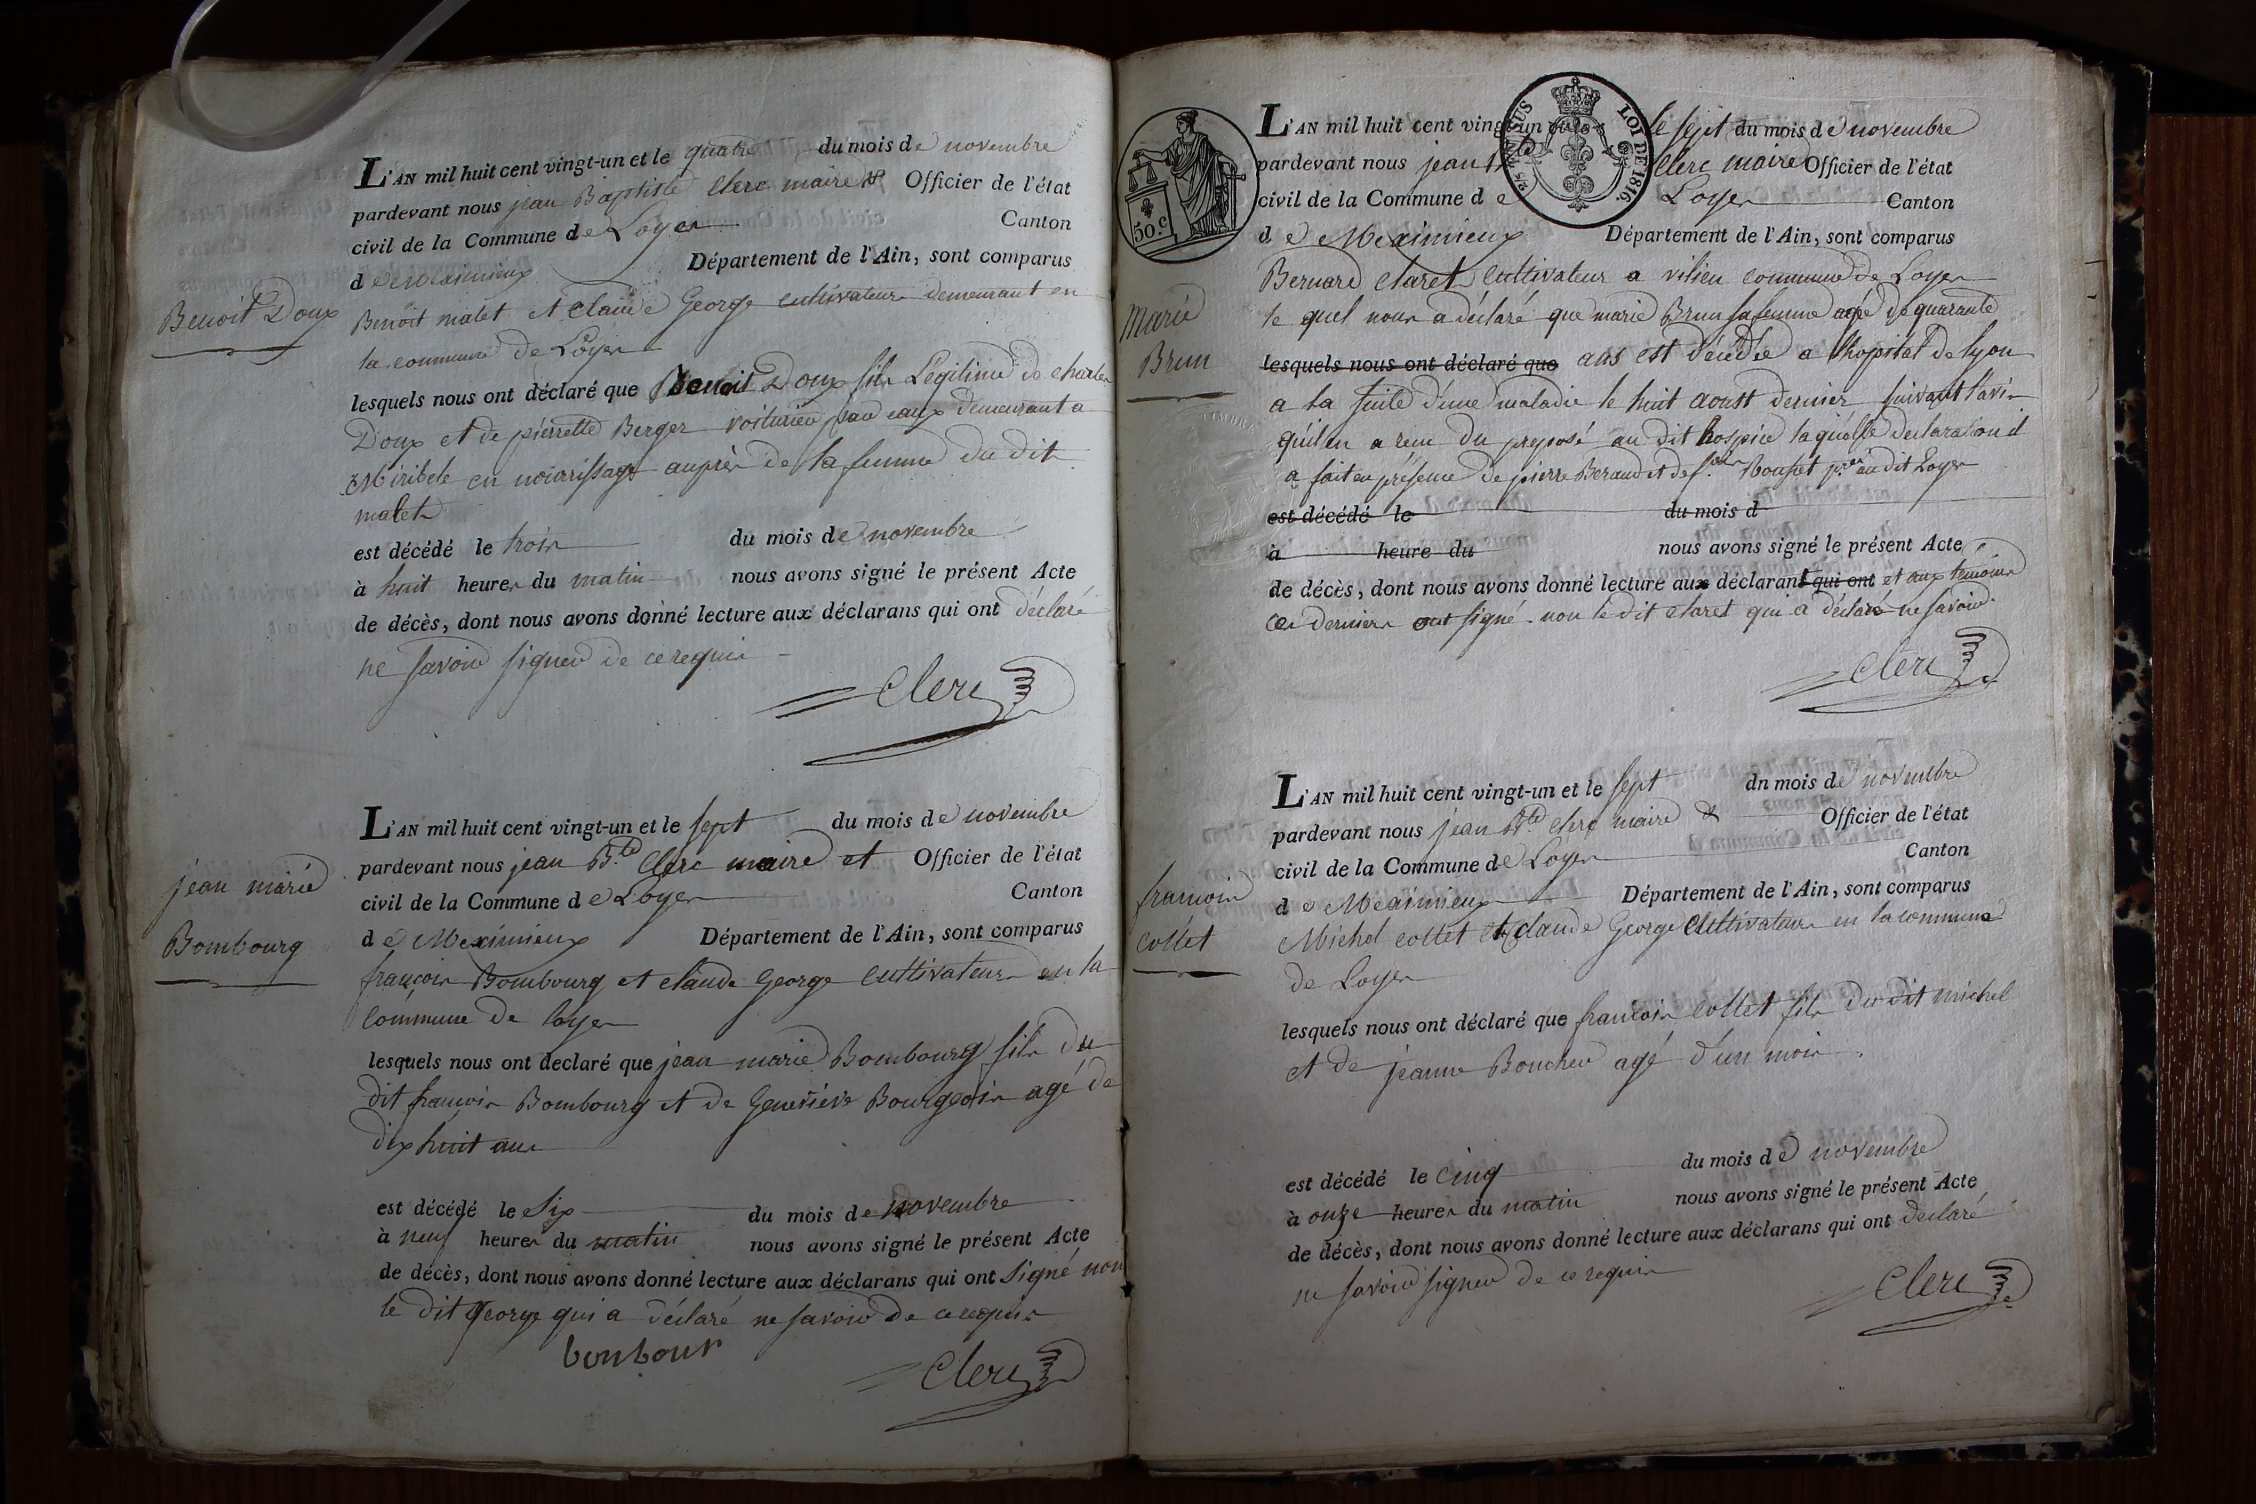 L'AN mil huit cent vingt-un et le quatre du mois de novembre
pardevant nous jean Baptiste Clerc maire & Officier de l'état
civil de la Commune de Loyes Canton
de Meximieux Département de l'Ain, sont comparus
Benoit malet et Claude George cultivateurs demeurant en
la commune de Loyes
Benoit Doux
lesquels nous ont déclaré que Benoit Doux fils Legitime de charles
Doux et de pierrette Berger voiturier par eaux demeurant a
Miribele en nourissage auprès de la femme du dit
malet
est décédé le trois du mois de novembre
à huit heures du matin nous avons signé le présent Acte
de décès, dont nous avons donné lecture aux déclarans qui ont déclaré
ne savoir signer de ce requis
Clerc
L'AN mil huit cent vingt-un et le sept du mois de novembre
pardevant nous jean Bte Clerc maire et Officier de l'état
civil de la Commune de Loyes Canton
de Meximieux Département de l'Ain, sont comparus
françois Bombourg et claude George cultivateurs en la
commune de loyes
jean marie
Bombourg
lesquels nous ont declaré que jean marie Bombourg fils du
dit francois Bombourg et de Geneviève Bourgeois agé de
dix huit ans
est décédé le Six du mois de novembre
à neuf heures du matin nous avons signé le présent Acte
de décès, dont nous avons donné lecture aux déclarans qui ont signé non
le dit George qui a déclaré ne savoir de ce requis
bonbour
Clerc
50.c
LOI DE 1816.
L'AN mil huit cent vingt-un et le sept du mois de novembre
pardevant nous jean Bte Clerc maire Officier de l'état
civil de la Commune de Loyes Canton
de Meximieux Département de l'Ain, sont comparus
Bernard claret cultivateur a vilieu commune de Loyes
Marie
Brun
le quel nous a déclaré que marie Brun sa femme agée de quarante
lesquels nous ont déclaré que ans est décédée a l'hopital de lyon
a la suite d'une maladie le huit aoust dernier suivant l'avis
qu'il en a recu du preposé au dit hospice laquelle declaration il
a fait en présence de pierre Beraud et de Rousset audit Loyes
est décédé le du mois d
à heure du nous avons signé le présent Acte
de décès, dont nous avons donné lecture aux déclarant qui ont et aux temoins
ces derniers ont signé non le dit claret qui a déclaré ne savoir.
Clerc
L'AN mil huit cent vingt-un et le sept dn mois de novembre
pardevant nous jean Bte Clerc maire & Officier de l'état
civil de la Commune de Loyes Canton
de Meximieux Département de l'Ain, sont comparus
Michel collet et Claude George Cultivateurs en la commune
de Loyes
francois
collet
lesquels nous ont déclaré que francois collet fils du dit michel
et de jeanne Boucher agé d'un mois.
est décédé le cinq du mois de novembre
à onze heures du matin nous avons signé le présent Acte
de décès, dont nous avons donné lecture aux déclarans qui ont déclaré
ne savoir signer de ce requis
Clerc